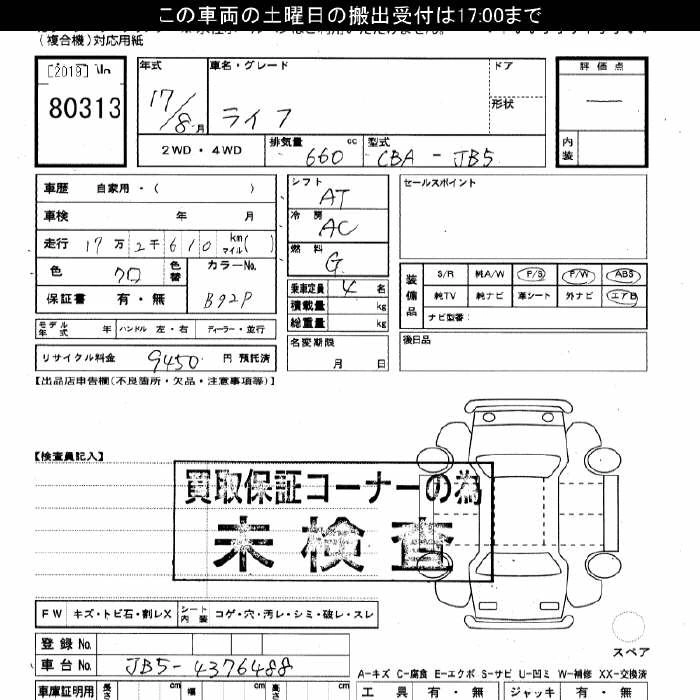 この車両の土曜日の搬出受付は17:00まで
(複合機)対応用紙
[2019]
80313
年式 車名・グレード ドア 評価点
17/8 月 ライフ 形状 —
2WD・4WD 排気量 660 cc 型式 CBA - JB5 内装
車歴 自家用・( )
車検 年 月
走行 17万2千610 km マイル( )
色 クロ 色替 カラーNo.
保証書 有・無 B92P
シフト AT
冷房 AC
燃料 G
乗車定員 4 名
積載量 kg
総重量 kg
セールスポイント
装備品 S/R 純A/W P/S P/W ABS
純TV 純ナビ 革シート 外ナビ エアB
ナビ型番:
モデル年式 年 ハンドル 左・右 ディーラー・並行
名変期限 月 日
後日品
リサイクル料金 9450 円 預託済
【出品店申告欄(不良箇所・欠品・注意事項等)】
【検査員記入】
買取保証コーナーの為
未検査
FW キズ・トビ石・割レX シート内装 コゲ・穴・汚レ・シミ・破レ・スレ
スペア
登録No.
車台No. JB5-4376488
A-キズ C-腐食 E-エクボ S-サビ U-凹ミ W-補修 XX-交換済
車庫証明用 長さ cm 幅 cm 高さ cm
工具 有・無 ジャッキ 有・無